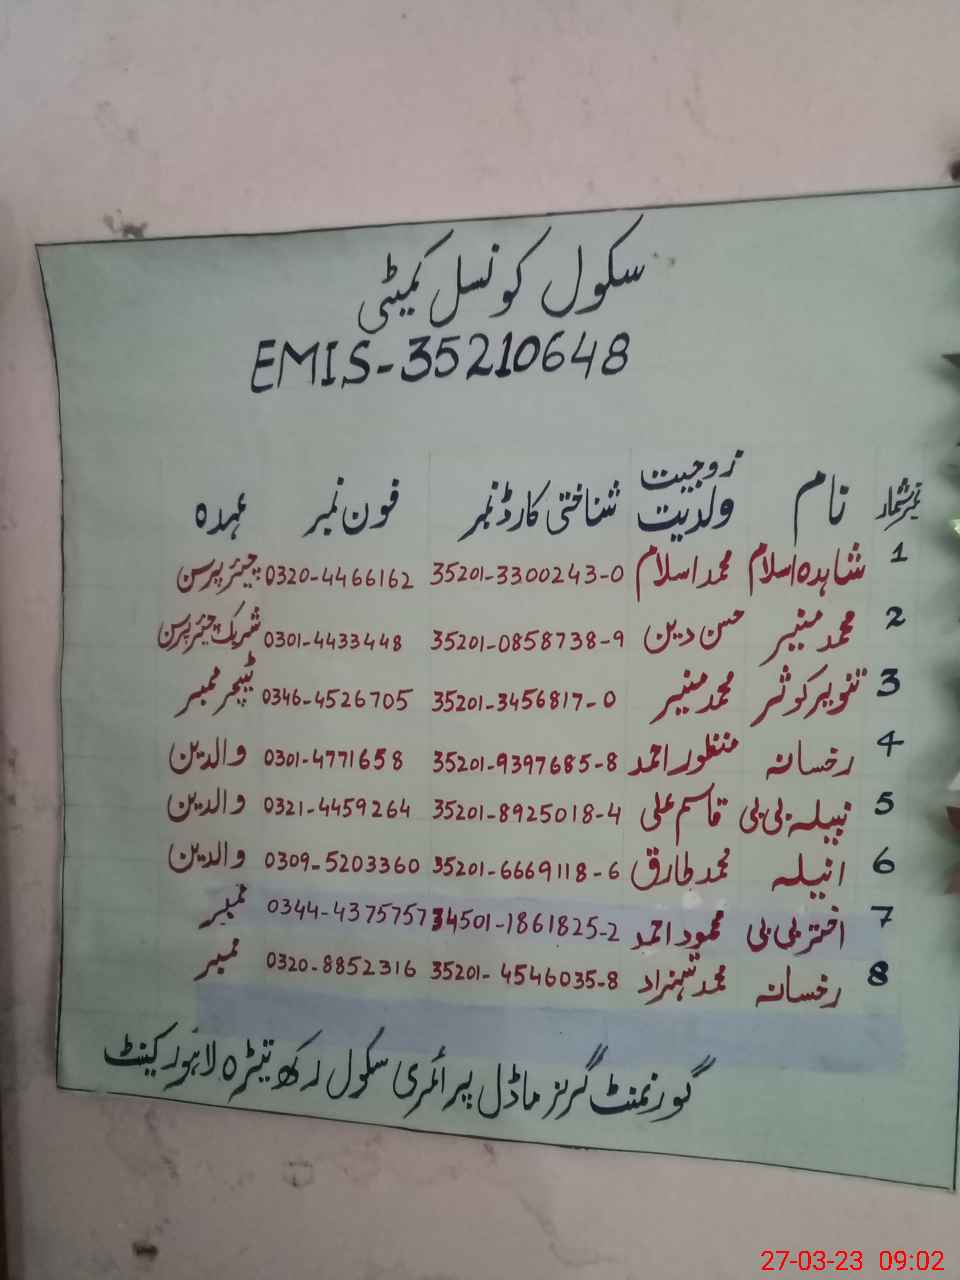 سکول کونسل کمیٹی
EMIS-35210648
نمبرشمار نام زوجیت ولدیت شناختی کارڈ نمبر فون نمبر عہدہ
1 شاہدہ اسلام محمد اسلام 35201-3300243-0 0320-4466162 چیئر پرسن
2 محمد منیر حسن دین 35201-0858738-9 0301-4433448 شریک چیئر پرسن
3 تنویر کوثر محمد منیر 35201-3456817-0 0346-4526705 ٹیچر ممبر
4 رخسانہ منظور احمد 35201-9397685-8 0301-4771658 والدین
5 نبیلہ بی بی قاسم علی 35201-8925018-4 0321-4459264 والدین
6 انیلہ محمد طارق 35201-6669118-6 0309-5203360 والدین
7 اختر بی بی محمود احمد 34501-1861825-2 0344-4375757 ممبر
8 رخسانہ محمد شہزاد 35201-4546035-8 0320-8852316 ممبر
گورنمنٹ گرلز ماڈل پرائمری سکول رکھ تیڑہ لاہور کینٹ
27-03-23 09:02